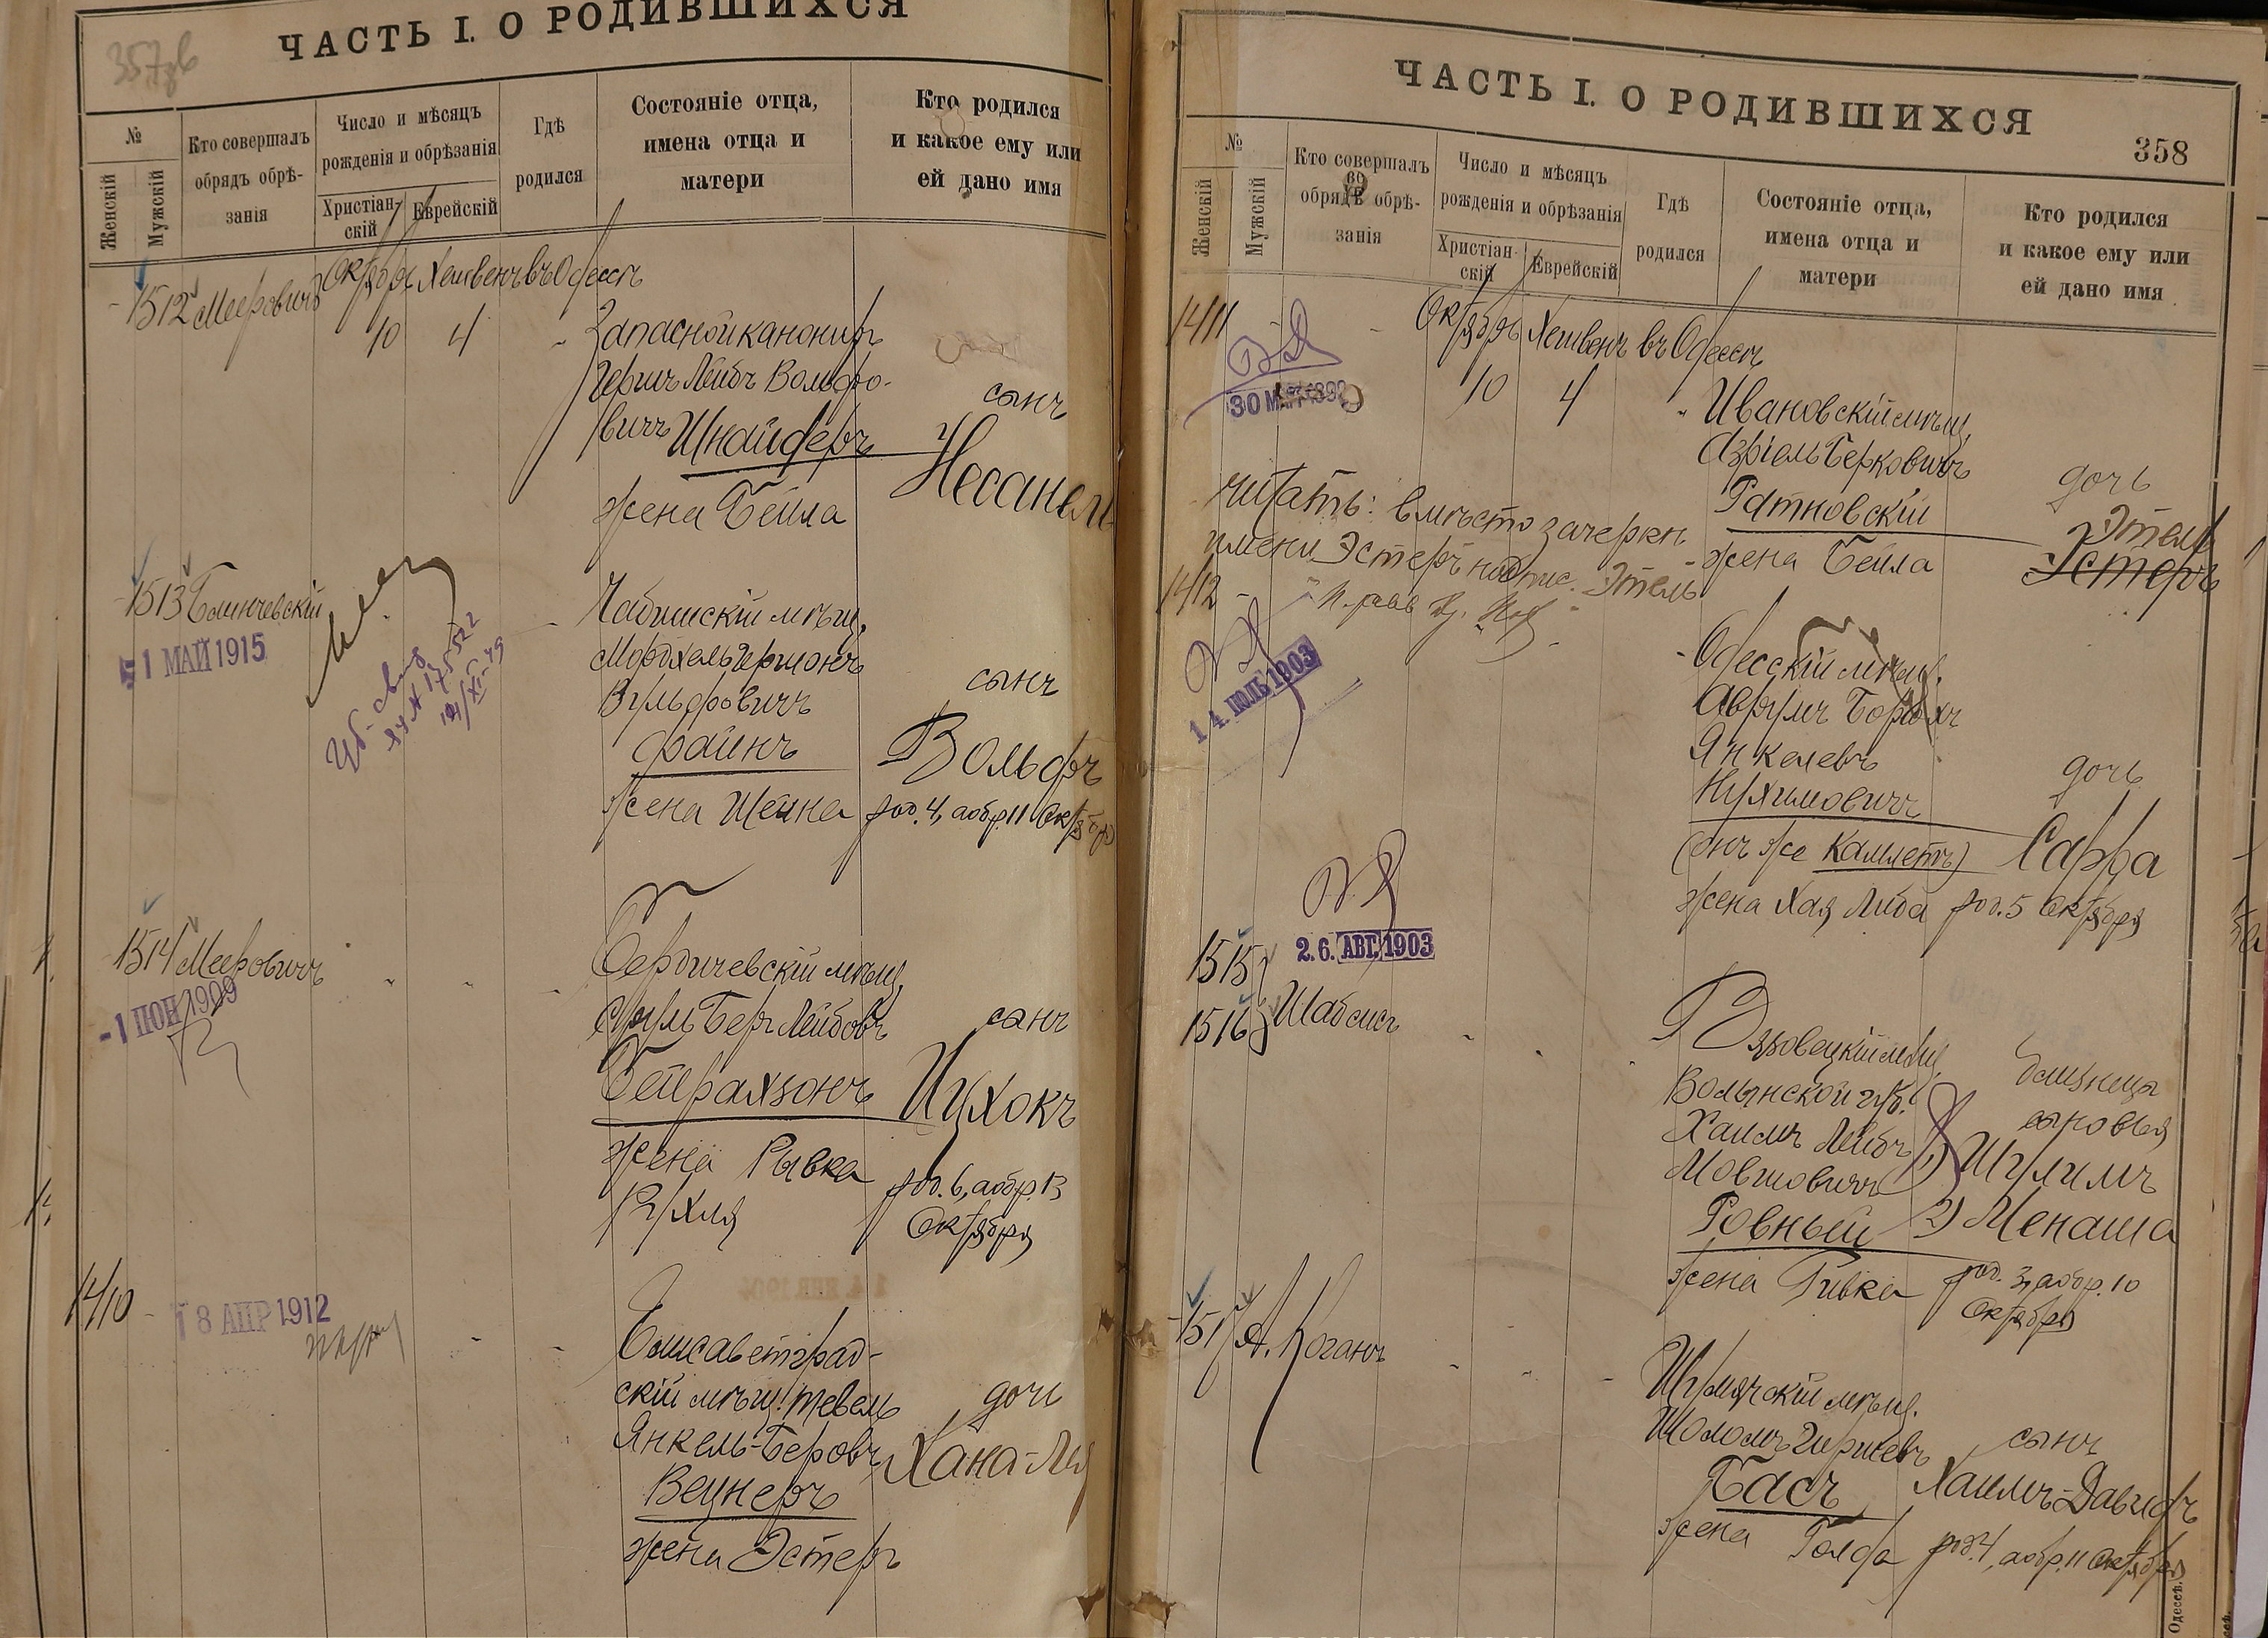 ЧАСТЬ I. О РОДИВШИХСЯ
№
Женскій
Мужскій
Кто совершалъ
обрядъ обрѣ-
занія
Число и мѣсяцъ
рожденія и обрѣзанія
Христіан-
скій
Еврейскій
Гдѣ
родился
Состояніе отца,
имена отца и
матери
Кто родился
и какое ему или
ей дано имя
1512 Мееровичъ
Октября Хешвенъ въ Одессѣ
10 4
Запасной канониръ
Гершъ Лейбъ Вольфо-
вичъ Шнайдеръ
жена Бейла
сынъ
Несанель
1513 Блинчевскій
51 МАЙ 1915
175522
Мордхель Гершонъ
Вульфовичъ
Файнъ
жена Шейна
сынъ
Вольфъ
род. 4, а обр. 11 Октября
1514 Мееровичъ
-1 ІЮН 1909
Бердичевскій мѣщ.
Сруль Беръ Лейбовъ
Бейрахзонъ
жена Рывка
Рухля
сынъ
Ицхокъ
род. 6, а обр. 13
Октября
1410
18 АПР 1912
Елисаветград-
скій мѣщ. Тевель
Янкель-Беровъ
Вецнеръ
жена Эстеръ
дочь
Хана-Лея
ЧАСТЬ I. О РОДИВШИХСЯ
358
№
Женскій
Мужскій
Кто совершалъ
обрядъ обрѣ-
занія
Число и мѣсяцъ
рожденія и обрѣзанія
Христіан-
скій
Еврейскій
Гдѣ
родился
Состояніе отца,
имена отца и
матери
Кто родился
и какое ему или
ей дано имя
1411
Октября Хешвенъ въ Одессѣ
10 4
Ивановскій мѣщ.
Азріель Берковичъ
Ратновскій
жена Бейла
дочь
Этель
Эстеръ
читать: вмѣсто зачеркн.
имени Эстеръ надпис. Этель
1412
14. ІЮЛЬ 1903
Одесскій мѣщ.
Аврумъ Борухъ
Янкелевъ
Нухимовичъ
(онъ же Камлетъ)
жена Хая Либа
дочь
Сарра
род. 5 Октября
1515
1516
Шабсисъ
26. АВГ. 1903
Волынской губ.
Хаимъ Лейбъ
Мовшовичъ
Ровный
жена Ривка
близнецы
сыновья
1) Шулимъ
2) Менаша
род. 3, а обр. 10
Октября
1517 А. Коганъ
Шоломъ Гершевъ
Басъ
жена Голда
сынъ
Хаимъ-Давидъ
род. 4, а обр. 11 Октября